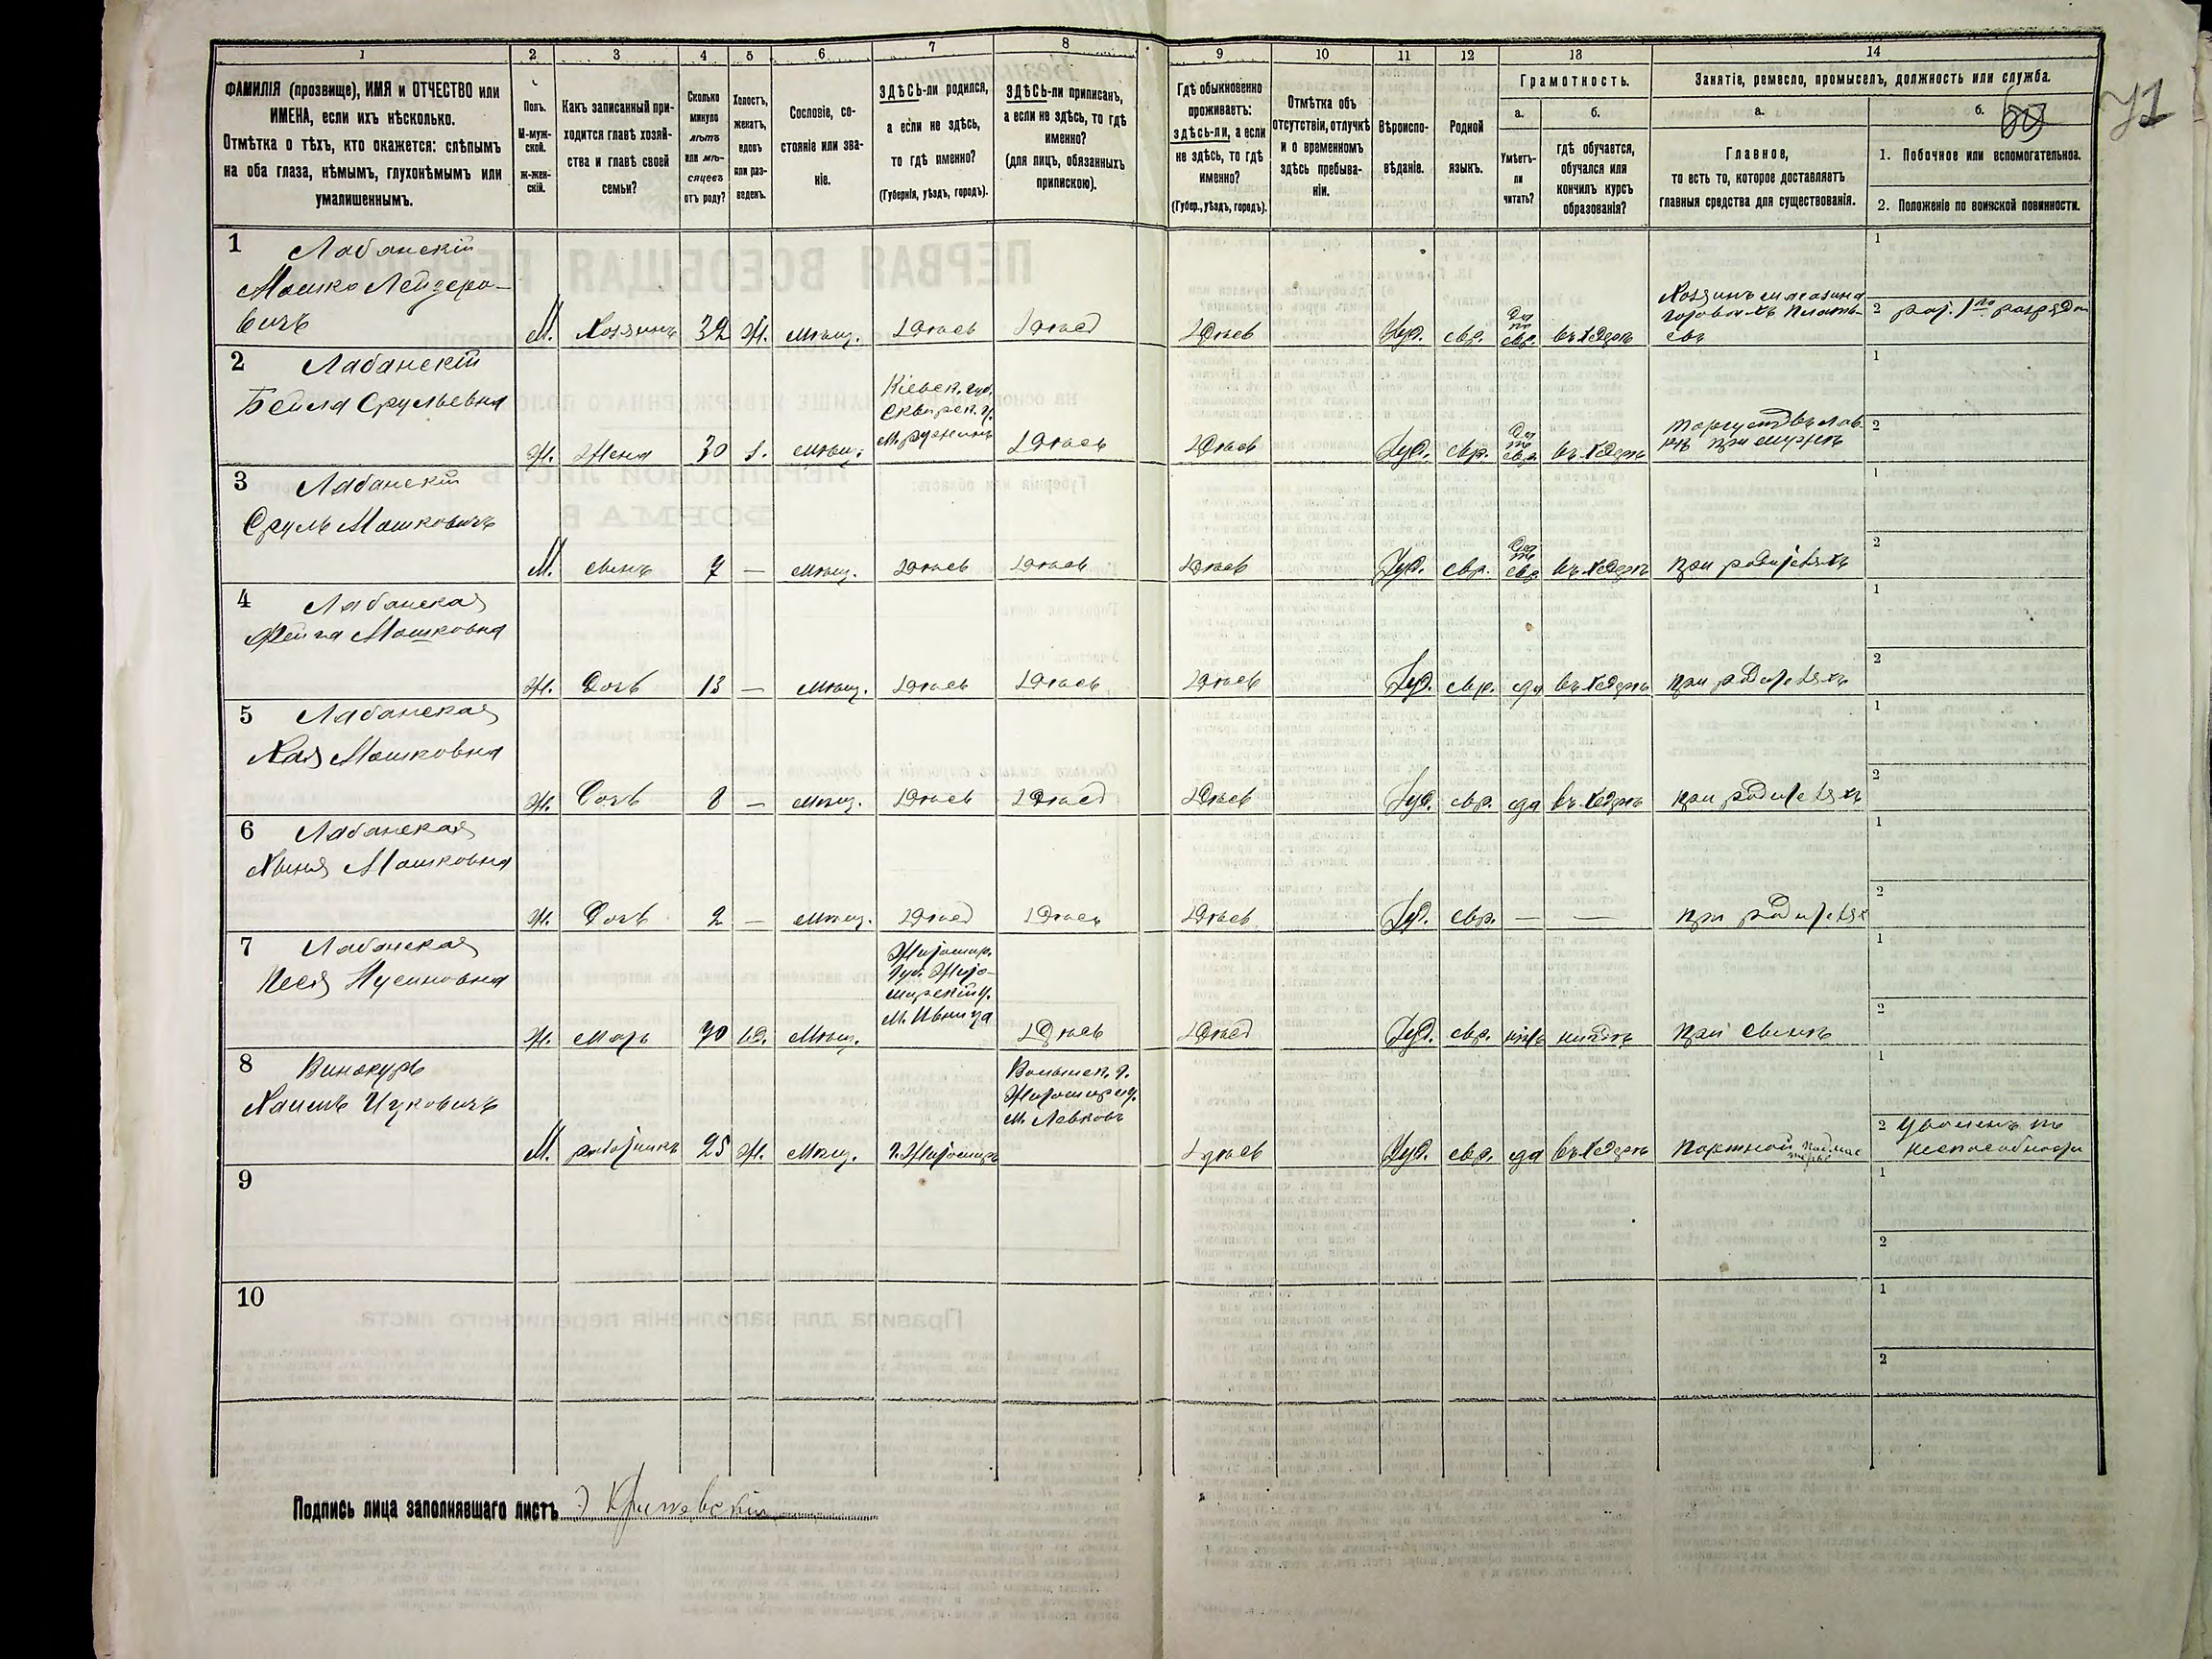 1 2 3 4 5 6 7 8 9 10 11 12 13 14
ФАМИЛІЯ (прозвище), ИМЯ и ОТЧЕСТВО или
ИМЕНА, если ихъ нѣсколько.
Отмѣтка о тѣхъ, кто окажется: слѣпымъ
на оба глаза, нѣмымъ, глухонѣмымъ или
умалишеннымъ.
Полъ.
М-муж-
ской.
ж-жен-
скій.
Какъ записанный при-
ходится главѣ хозяй-
ства и главѣ своей
семьи?
Сколько
минуло
лѣтъ
или мѣ-
сяцевъ
отъ роду?
Холостъ,
женатъ,
вдовъ
или раз-
веденъ.
Сословіе, со-
стояніе или зва-
ніе.
ЗДѢСЬ-ли родился,
а если не здѣсь,
то гдѣ именно?
(Губернія, уѣздъ, городъ).
ЗДѢСЬ-ли приписанъ,
а если не здѣсь, то гдѣ
именно?
(для лицъ, обязанныхъ
припискою).
Гдѣ обыкновенно
проживаетъ:
здѣсь-ли, а если
не здѣсь, то гдѣ
именно?
(Губер., уѣздъ, городъ).
Отмѣтка объ
отсутствіи, отлучкѣ
и о временномъ
здѣсь пребыва-
ніи.
Вѣроиспо-
вѣданіе.
Родной
языкъ.
Грамотность.
а.
Умѣетъ-
ли
читать?
б.
гдѣ обучается,
обучался или
кончилъ курсъ
образованія?
Занятіе, ремесло, промыселъ, должность или служба.
а.
Главное,
то есть то, которое доставляетъ
главныя средства для существованія.
б.
60
71
1. Побочное или вспомогательное.
2. Положеніе по воинской повинности.
1 Лабанскій
Мошко Лейзеро-
вичъ
М. Хозяинъ 32 Ж. мѣщ. Здѣсь Здѣсь Здѣсь Іуд. евр. Да
по
евр. въ хедерѣ
Хозяинъ магазина
готовыхъ платье-
въ
1
2 рат. 1го разряда
2 Лабанскій
Бейла Срульевна
Ж. Жена 30 з. мѣщ. Кіевск. губ.
Сквирск. у.
м. Ружинъ Здѣсь Здѣсь Іуд. евр. Да
по
евр. въ хедерѣ
Торгуетъ въ лав-
кѣ при мужѣ
1
2
3 Лабанскій
Сруль Мошковичъ
М. сынъ 7 — мѣщ. Здѣсь Здѣсь Здѣсь Іуд. евр. Да
по
евр. въ хедерѣ при родителяхъ
1
2
4 Лабанская
Фейга Мошковна
Ж. Дочь 13 — мѣщ. Здѣсь Здѣсь Здѣсь Іуд. евр. да въ хедерѣ при родителяхъ
1
2
5 Лабанская
Хая Мошковна
Ж. Дочь 8 — мѣщ. Здѣсь Здѣсь Здѣсь Іуд. евр. да въ хедерѣ при родителяхъ
1
2
6 Лабанская
Хыня Мошковна
Ж. Дочь 2 — мѣщ. Здѣсь Здѣсь Здѣсь Іуд. евр. — — при родителях
1
2
7 Лабанская
Песя Нусиновна
Ж. мать 70 вд. мѣщ. Житомир.
Губ. Жито-
мирскій у.
м. Ивница Здѣсь Здѣсь Іуд. евр. нѣтъ нигдѣ при сынѣ
1
2
8 Винокуръ
Хаимъ Ицковичъ
М. работникъ 25 Ж. мѣщ. г. Житомиръ Волынск. г.
Житомир. у.
м. Левковъ
Здѣсь Іуд. евр. да въ хедерѣ Портной подмас
терье
1
2 уволенъ по
неспособности
9
1
2
10
1
2
Подпись лица заполнявшаго листъ